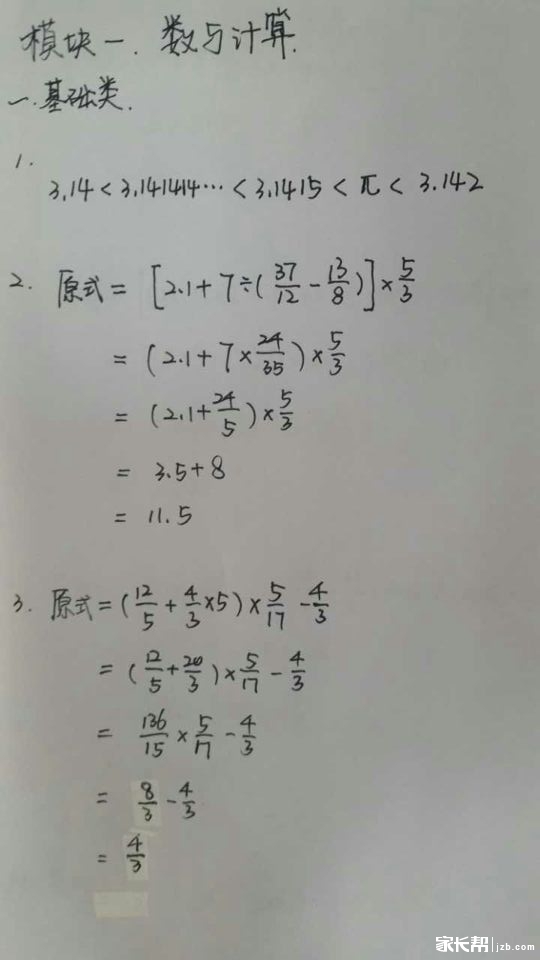 模块一. 数与计算.
一.基础类.
1.
3.14 < 3.141414… < 3.1415 < π < 3.142
2. 原式 = [2.1 + 7 ÷ (37/12 - 13/8)] × 5/3
= (2.1 + 7 × 24/35) × 5/3
= (2.1 + 24/5) × 5/3
= 3.5 + 8
= 11.5
3. 原式 = (12/5 + 4/3 × 5) × 5/17 - 4/3
= (12/5 + 20/3) × 5/17 - 4/3
= 136/15 × 5/17 - 4/3
= 8/3 - 4/3
= 4/3
家长帮 jzb.com